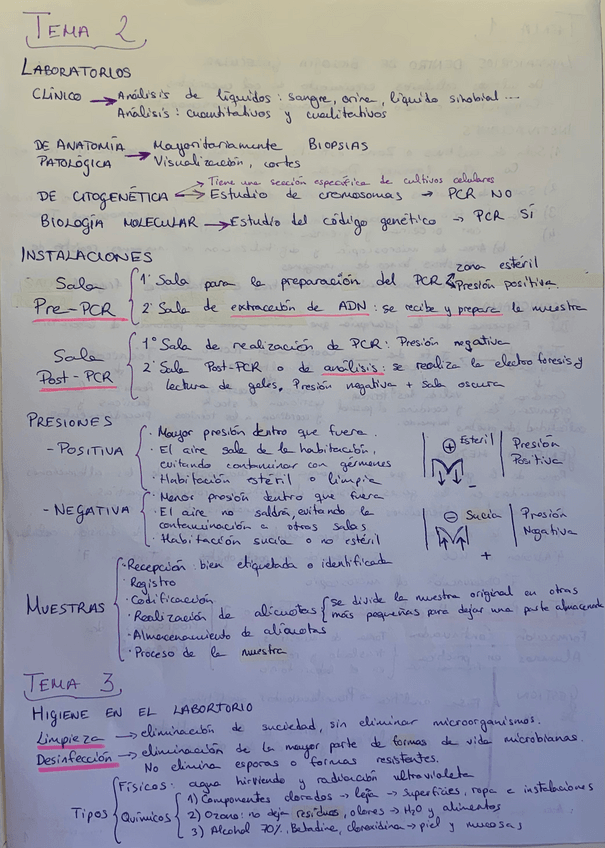 TEMA 2
LABORATORIOS
CLÍNICO → Análisis de líquidos: sangre, orina, líquido sinobial...
Análisis: cuantitativos y cualitativos
DE ANATOMÍA PATOLÓGICA → Mayoritariamente BIOPSIAS
Visualización, cortes
→ Tiene una sección específica de cultivos celulares
DE CITOGENÉTICA → Estudio de cromosomas → PCR NO
BIOLOGÍA MOLECULAR → Estudio del código genético → PCR SÍ
INSTALACIONES
- Sala Pre-PCR
1ª Sala para la preparación del PCR zona estéril
Presión positiva.
2ª Sala de extracción de ADN: se recibe y prepara la muestra
Sala Post-PCR
1º Sala de realización de PCR: Presión negativa
2ª Sala Post-PCR o de análisis: se realiza la electroforesis y
lectura de geles. Presión negativa + sala oscura
PRESIONES
- POSITIVA
· Mayor presión dentro que fuera.
· El aire sale de la habitación,
evitando contaminar con gérmenes
· Habitación estéril o limpia
+ Estéril
-
Presión Positiva
- NEGATIVA
· Menor presión dentro que fuera
· El aire no saldrá, evitando la
contaminación a otras salas
· Habitación sucia o no estéril
- Sucia
+
Presión Negativa
MUESTRAS
· Recepción: bien etiquetada o identificada
· Registro
· Codificación
· Realización de alícuotas { se divide la muestra original en otras
más pequeñas para dejar una parte almacenada
· Almacenamiento de alícuotas
· Proceso de la muestra
TEMA 3
HIGIENE EN EL LABORTORIO
Limpieza → eliminación de suciedad, sin eliminar microorganismos.
Desinfección → eliminación de la mayor parte de formas de vida microbianas.
No elimina esporas o formas resistentes.
Tipos
Físicos: agua hirviendo y radiación ultravioleta
Químicos
1) Componentes clorados → lejía → superficies, ropa e instalaciones
2) Ozono: no deja residuos, olores → H2O y alimentos
3) Alcohol 70%, Betadine, clorexidina → piel y mucosas